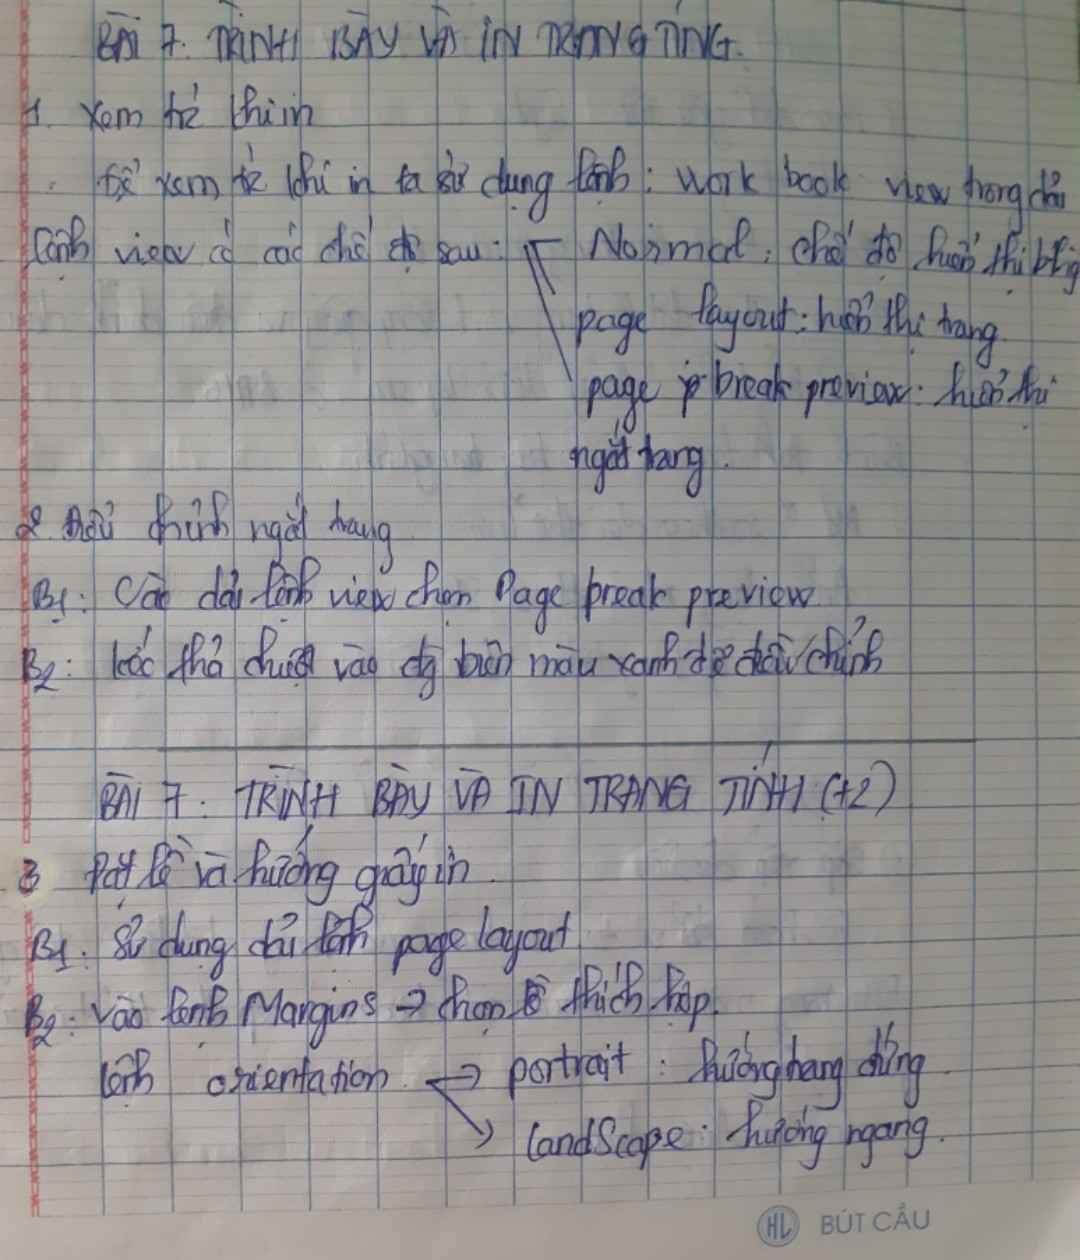 BÀI 7. TRÌNH BÀY VÀ IN TRANG TÍNG.
1. Xem trước khi in
Để xem trước khi in ta sử dụng lệnh: Work book view trong dải
lệnh view có các chế độ sau: Normal: chế độ hiển thị bthg
page layout: hiển thị trang
page break preview: hiển thị
ngắt trang.
2. Điều chỉnh ngắt trang
B1: Vào dải lệnh view chọn Page break preview
B2: kéo thả chuột vào đg biên màu xanh để điều chỉnh
BÀI 7: TRÌNH BÀY VÀ IN TRANG TÍNH (t2)
3 Đặt lề và hướng giấy in.
B1: Sử dụng dải lệnh page layout
B2: Vào lệnh Margins → chọn lề thích hợp.
lệnh orientation → portrait: hướng trang đứng
→ landScape: hướng ngang.
HL BÚT CẦU